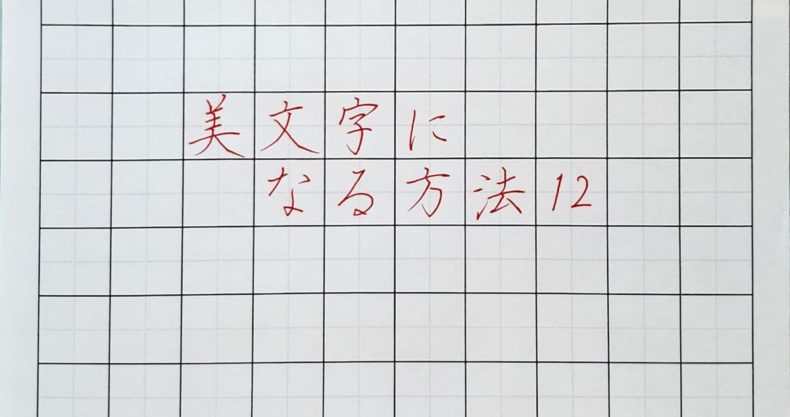 美文字に
なる方法12